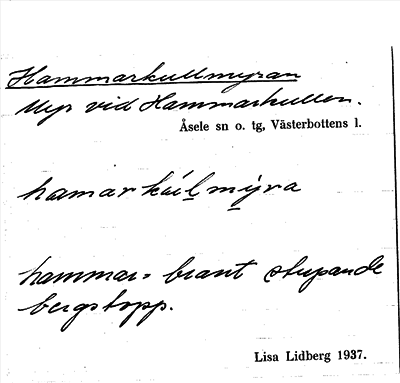 Hammarkullmyran
Myr vid Hammarkullen.
Åsele sn o. tg, Västerbottens l.
hamarkúl mýra
hammar = brant stupande
bergstopp.
Lisa Lidberg 1937.